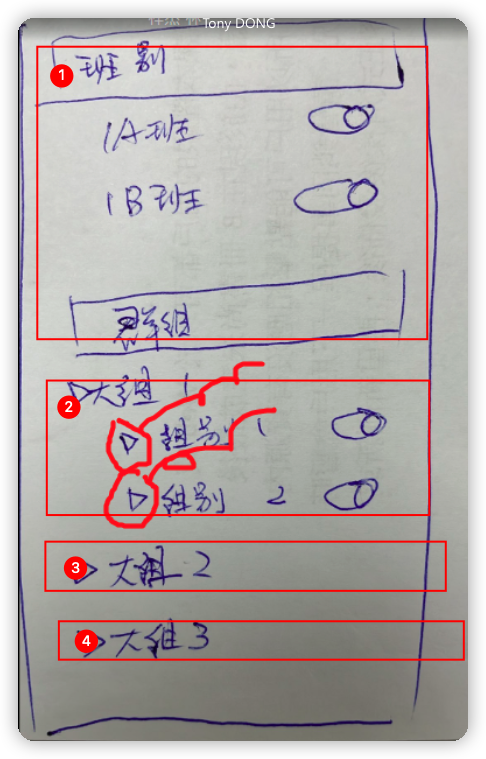 Tony DONG
1 班别
1A班
1B班
群组
2 大组 1
组别 1
组别 2
3 大组 2
4 大组 3